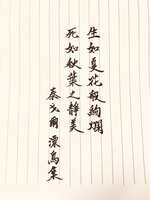 生如夏花般絢爛
死如秋葉之靜美
泰戈爾 漂鳥集